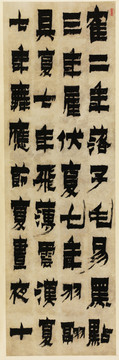 隺二年落子毛易黑點
三年產伏复七年羽翮
具复七年飛薄雲漢复
七年舞應節复晝夜十